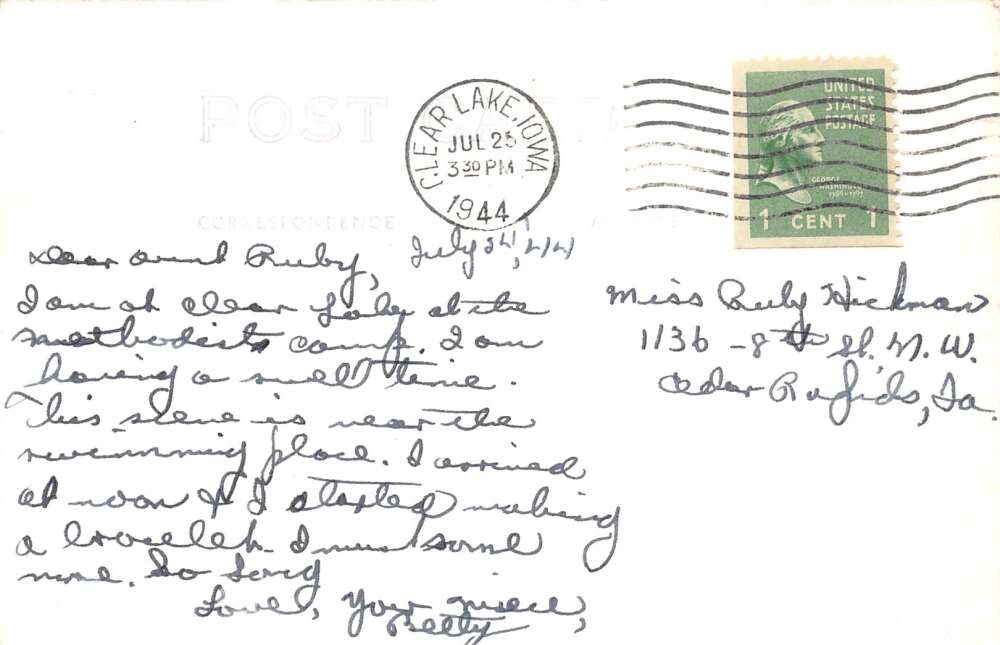 POST CARD
CLEAR LAKE, IOWA
JUL 25
3 30 PM
1944
UNITED
STATES
POSTAGE
GEORGE
WASHINGTON
1789-1797
1 CENT 1
CORRESPONDENCE
July 24, 44
Dear Aunt Ruby,
I am at Clear Lake at the
Methodists camp. I am
having a swell time.
This scene is near the
swimming place. I arrived
at noon & I started making
a bracelet. I swum some
more. So Long
Love, Your niece,
Betty
Miss Ruby Hickman
1136 - 8th St. N. W.
Cedar Rapids, Ia.